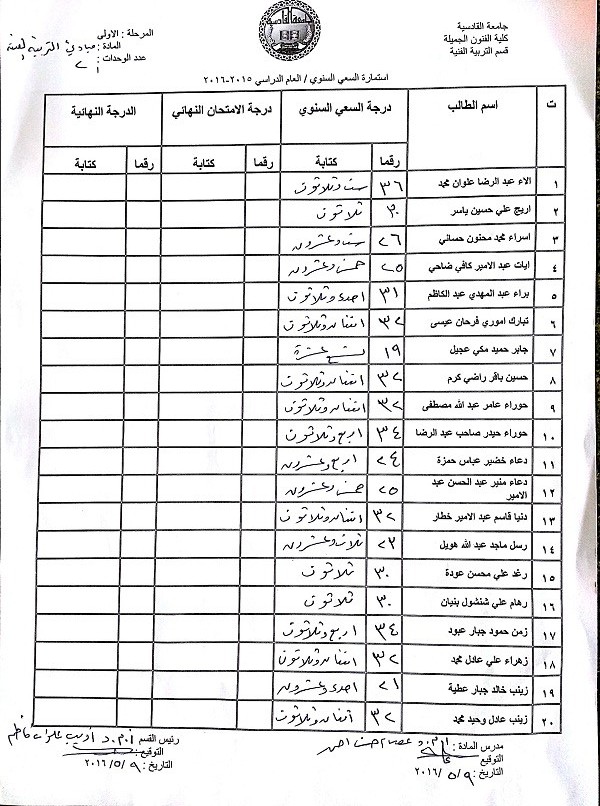 جامعة القادسية
كلية الفنون الجميلة
قسم التربية الفنية
المرحلة: الاولى
المادة: مبادئ التربية الفنية
عدد الوحدات: ٢
استمارة السعي السنوي / العام الدراسي ٢٠١٥-٢٠١٦
ت اسم الطالب درجة السعي السنوي درجة الامتحان النهائي الدرجة النهائية
رقما كتابة رقما كتابة رقما كتابة
١ الاء عبد الرضا علوان محمد ٣٦ ست وثلاثون
٢ اريج علي حسين ياسر ٣٠ ثلاثون
٣ اسراء محمد محنون حساني ٢٦ ست وعشرون
٤ ايات عبد الامير كافي ضاحي ٢٥ خمس وعشرون
٥ براء عبد المهدي عبد الكاظم ٣١ احدى وثلاثون
٦ تبارك اموري فرحان عيسى ٣٢ اثنان وثلاثون
٧ جابر حميد مكي عجيل ١٩ تسع عشرة
٨ حسين باقر راضي كرم ٣٢ اثنان وثلاثون
٩ حوراء عامر عبد الله مصطفى ٣٢ اثنان وثلاثون
١٠ حوراء حيدر صاحب عبد الرضا ٣٤ اربع وثلاثون
١١ دعاء خضير عباس حمزة ٢٤ اربع وعشرون
١٢ دعاء منير عبد الحسن عبد الامير ٢٥ خمس وعشرون
١٣ دنيا قاسم عبد الامير خطار ٣٢ اثنان وثلاثون
١٤ رسل ماجد عبد الله هويل ٢٣ ثلاث وعشرون
١٥ رغد علي محسن عودة ٣٠ ثلاثون
١٦ رهام علي شنشول بنيان ٣٠ ثلاثون
١٧ زمن حمود جبار عبود ٣٤ اربع وثلاثون
١٨ زهراء علي عادل محمد ٣٢ اثنان وثلاثون
١٩ زينب خالد جبار عطية ٢١ احدى وعشرون
٢٠ زينب عادل وحيد محمد ٣٢ اثنان وثلاثون
مدرس المادة: ا.م.د عصام حسن احمد
التوقيع
التاريخ: ٢٠١٦/٥/٩
رئيس القسم ا.م.د اديب علوان كاظم
التوقيع:
التاريخ: ٢٠١٦/٥/٩